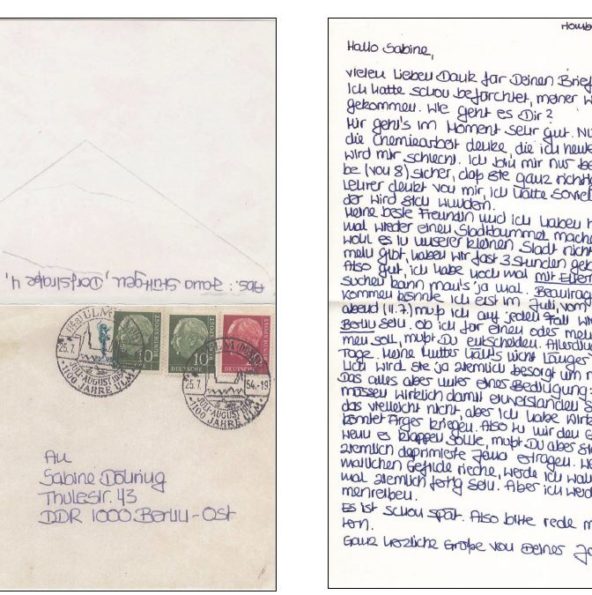 Abs.: Jana Stüttgen, Dorfstraße 4,
(14a) ULM (DONAU)
25.7.
JULI-AUGUST 1954
1100 JAHRE ULM
10
DEUTSCHE
10
DEUTSCHE
25.7.
54-19
JULI-AUGUST 1954
1100 JAHRE ULM
An
Sabine Döhring
Thulestr. 43
DDR 1000 Berlin-Ost
Hallo Sabine,
vielen lieben Dank für Deinen Brief
Ich hatte schon befürchtet, meiner w
gekommen. Wie geht es Dir?
Mir geht's im Moment sehr gut. Nu
die Chemiearbeit denke, die ich heute
wird mir schlecht. Ich bin mir nur be
be (von 8) sicher, daß sie ganz richti
Lehrer denkt von mir, ich hätte sovie
der wird sich wundern.
Meine beste Freundin und ich haben h
mal wieder einen Stadtbummel mache
wohl es in unserer kleinen Stadt nicht
mehr gibt, haben wir fast 3 Stunden geb
Also gut, ich habe noch mal mit Eltern
suchen kann man's ja mal. Beauftrag
kommen könnte ich erst im Juli, vom
abend (11.7.) muß ich auf jeden Fall wi
Berlin sein. Ob ich für einen oder meh
men soll, mußt Du entscheiden. Allerdin
Tage. Meine Mutter will's nicht länger
lich wird sie ja ziemlich besorgt um m
Das alles aber unter einer Bedingung:
müssen wirklich damit einverstanden s
das vielleicht nicht, aber ich habe wirk
könntet Ärger kriegen. Also tu mir den G
wenn es klappen sollte, mußt Du aber
ziemlich deprimierte Jana ertragen. We
matlichen Gefilde rieche, werde ich wah
mal ziemlich fertig sein. Aber ich werd
menreißen.
Es ist schon spät. Also bitte rede m
tern.
Ganz herzliche Grüße von Deiner